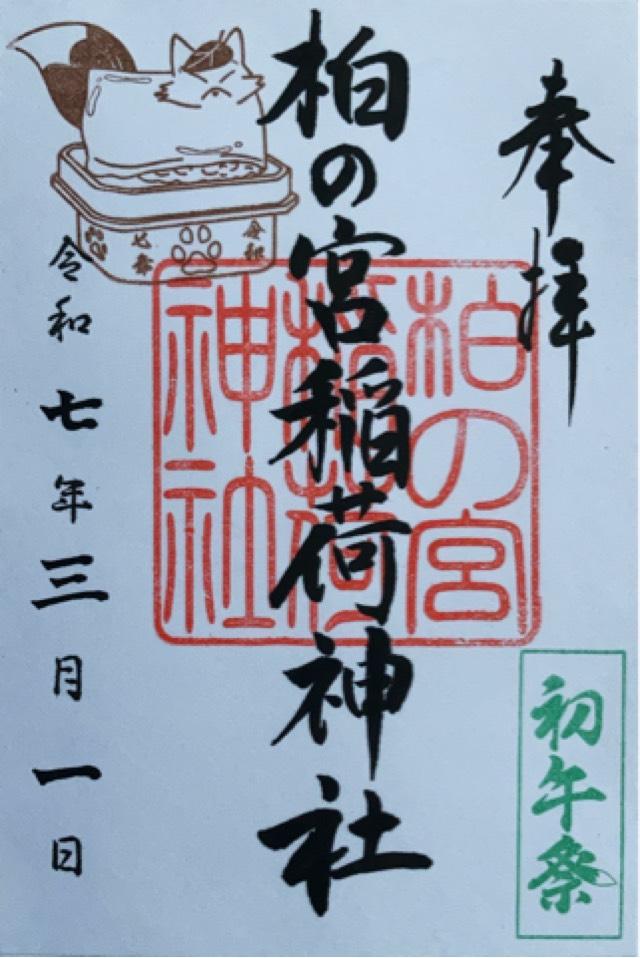 奉拝
柏の宮稲荷神社
柏の宮
稲荷
神社
令和七年三月一日
令和
七年
初午祭